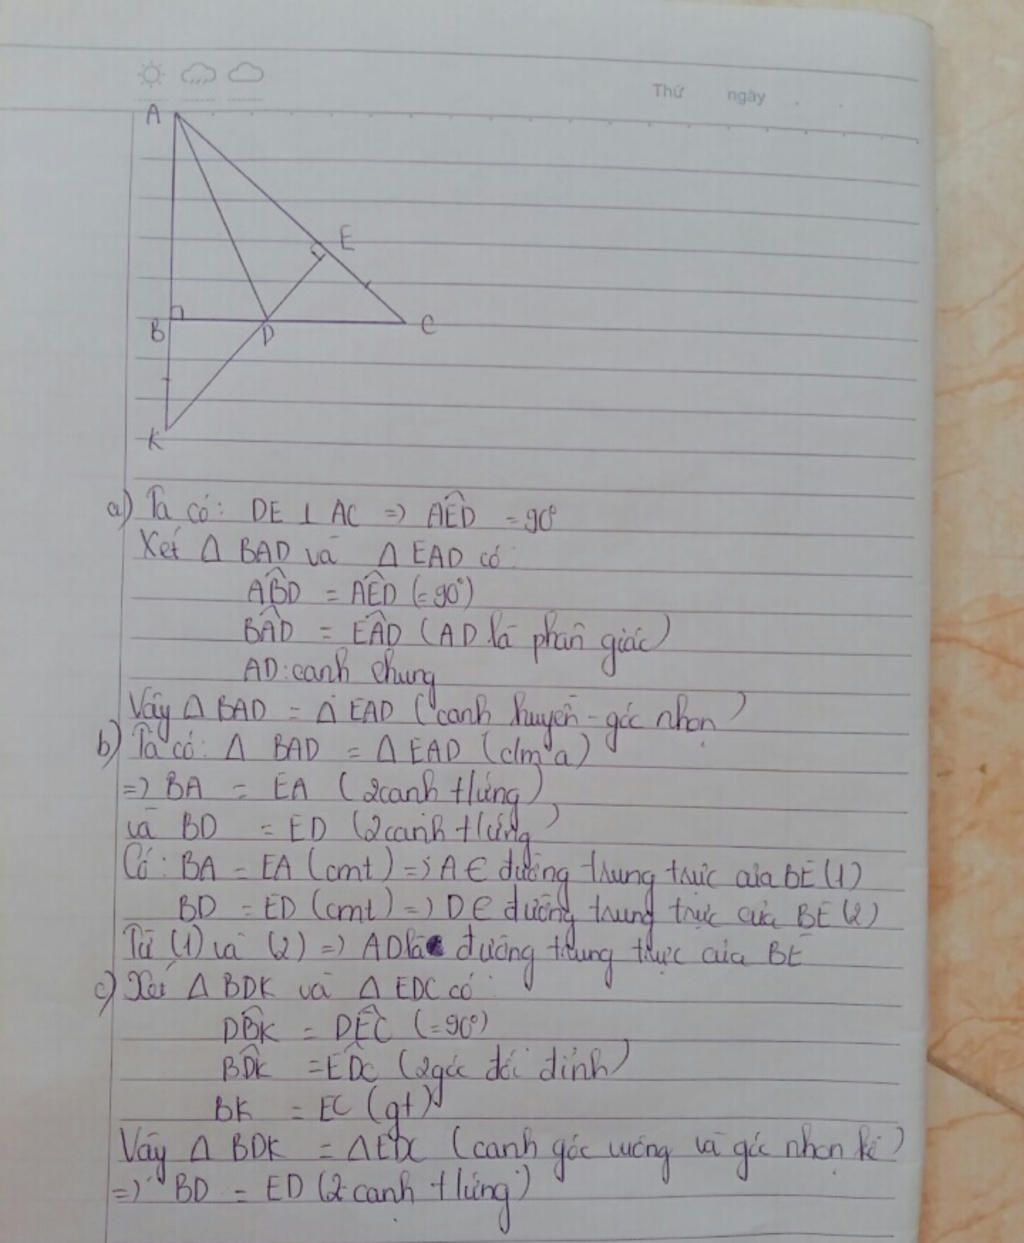 Thứ ngày
A
E
B
D
C
K
a) Ta có: DE ⊥ AC => AÊD = 90°
Xét Δ BAD và Δ EAD có:
AB̂D = AÊD (= 90°)
BÂD = EÂD (AD là phân giác)
AD: cạnh chung
Vậy Δ BAD = Δ EAD (cạnh huyền - góc nhọn)
b) Ta có: Δ BAD = Δ EAD (c/m a)
=> BA = EA (2 cạnh t/ứng)
và BD = ED (2 cạnh t/ứng)
Có: BA = EA (cmt) => A ∈ đường trung trực của BE (1)
BD = ED (cmt) => D ∈ đường trung trực của BE (2)
Từ (1) và (2) => AD là đường trung trực của BE
c) Xét Δ BDK và Δ EDC có:
DB̂K = DÊC (= 90°)
BD̂K = ED̂C (2 góc đối đỉnh)
BK = EC (gt)
Vậy Δ BDK = Δ EDC (cạnh góc vuông và góc nhọn kề)
=> BD = ED (2 cạnh t/ứng)